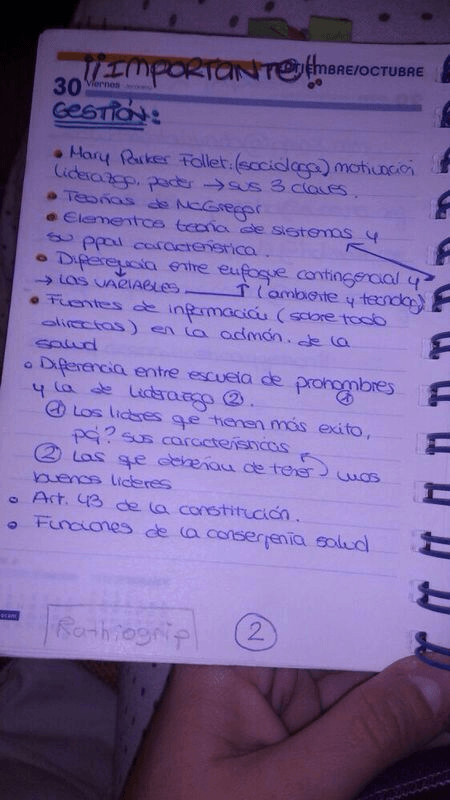 ¡¡IMPORTANTE!!
TIEMBRE/OCTUBRE
30 Viernes Jeronimo
GESTIÓN:
• Mary Parker Follet: (socióloga) motivación
Liderazgo, poder → sus 3 claves.
• Teorías de McGregor
• Elementos teoría de sistemas y
su ppal característica.
• Diferencia entre enfoque contingencial y
→ Las VARIABLES (ambiente y tecnolog)
• Fuentes de información (sobre todo
directas) en la admón. de la
salud
• Diferencia entre escuela de prohombres ①
y la de Liderazgo ②.
① Los líderes qe tienen más exito,
pq? sus características
② Las qe deberían de tener unos
buenos líderes
• Art. 43 de la constitución.
• Funciones de la consergenía salud
ocam
Rathiogrip
②